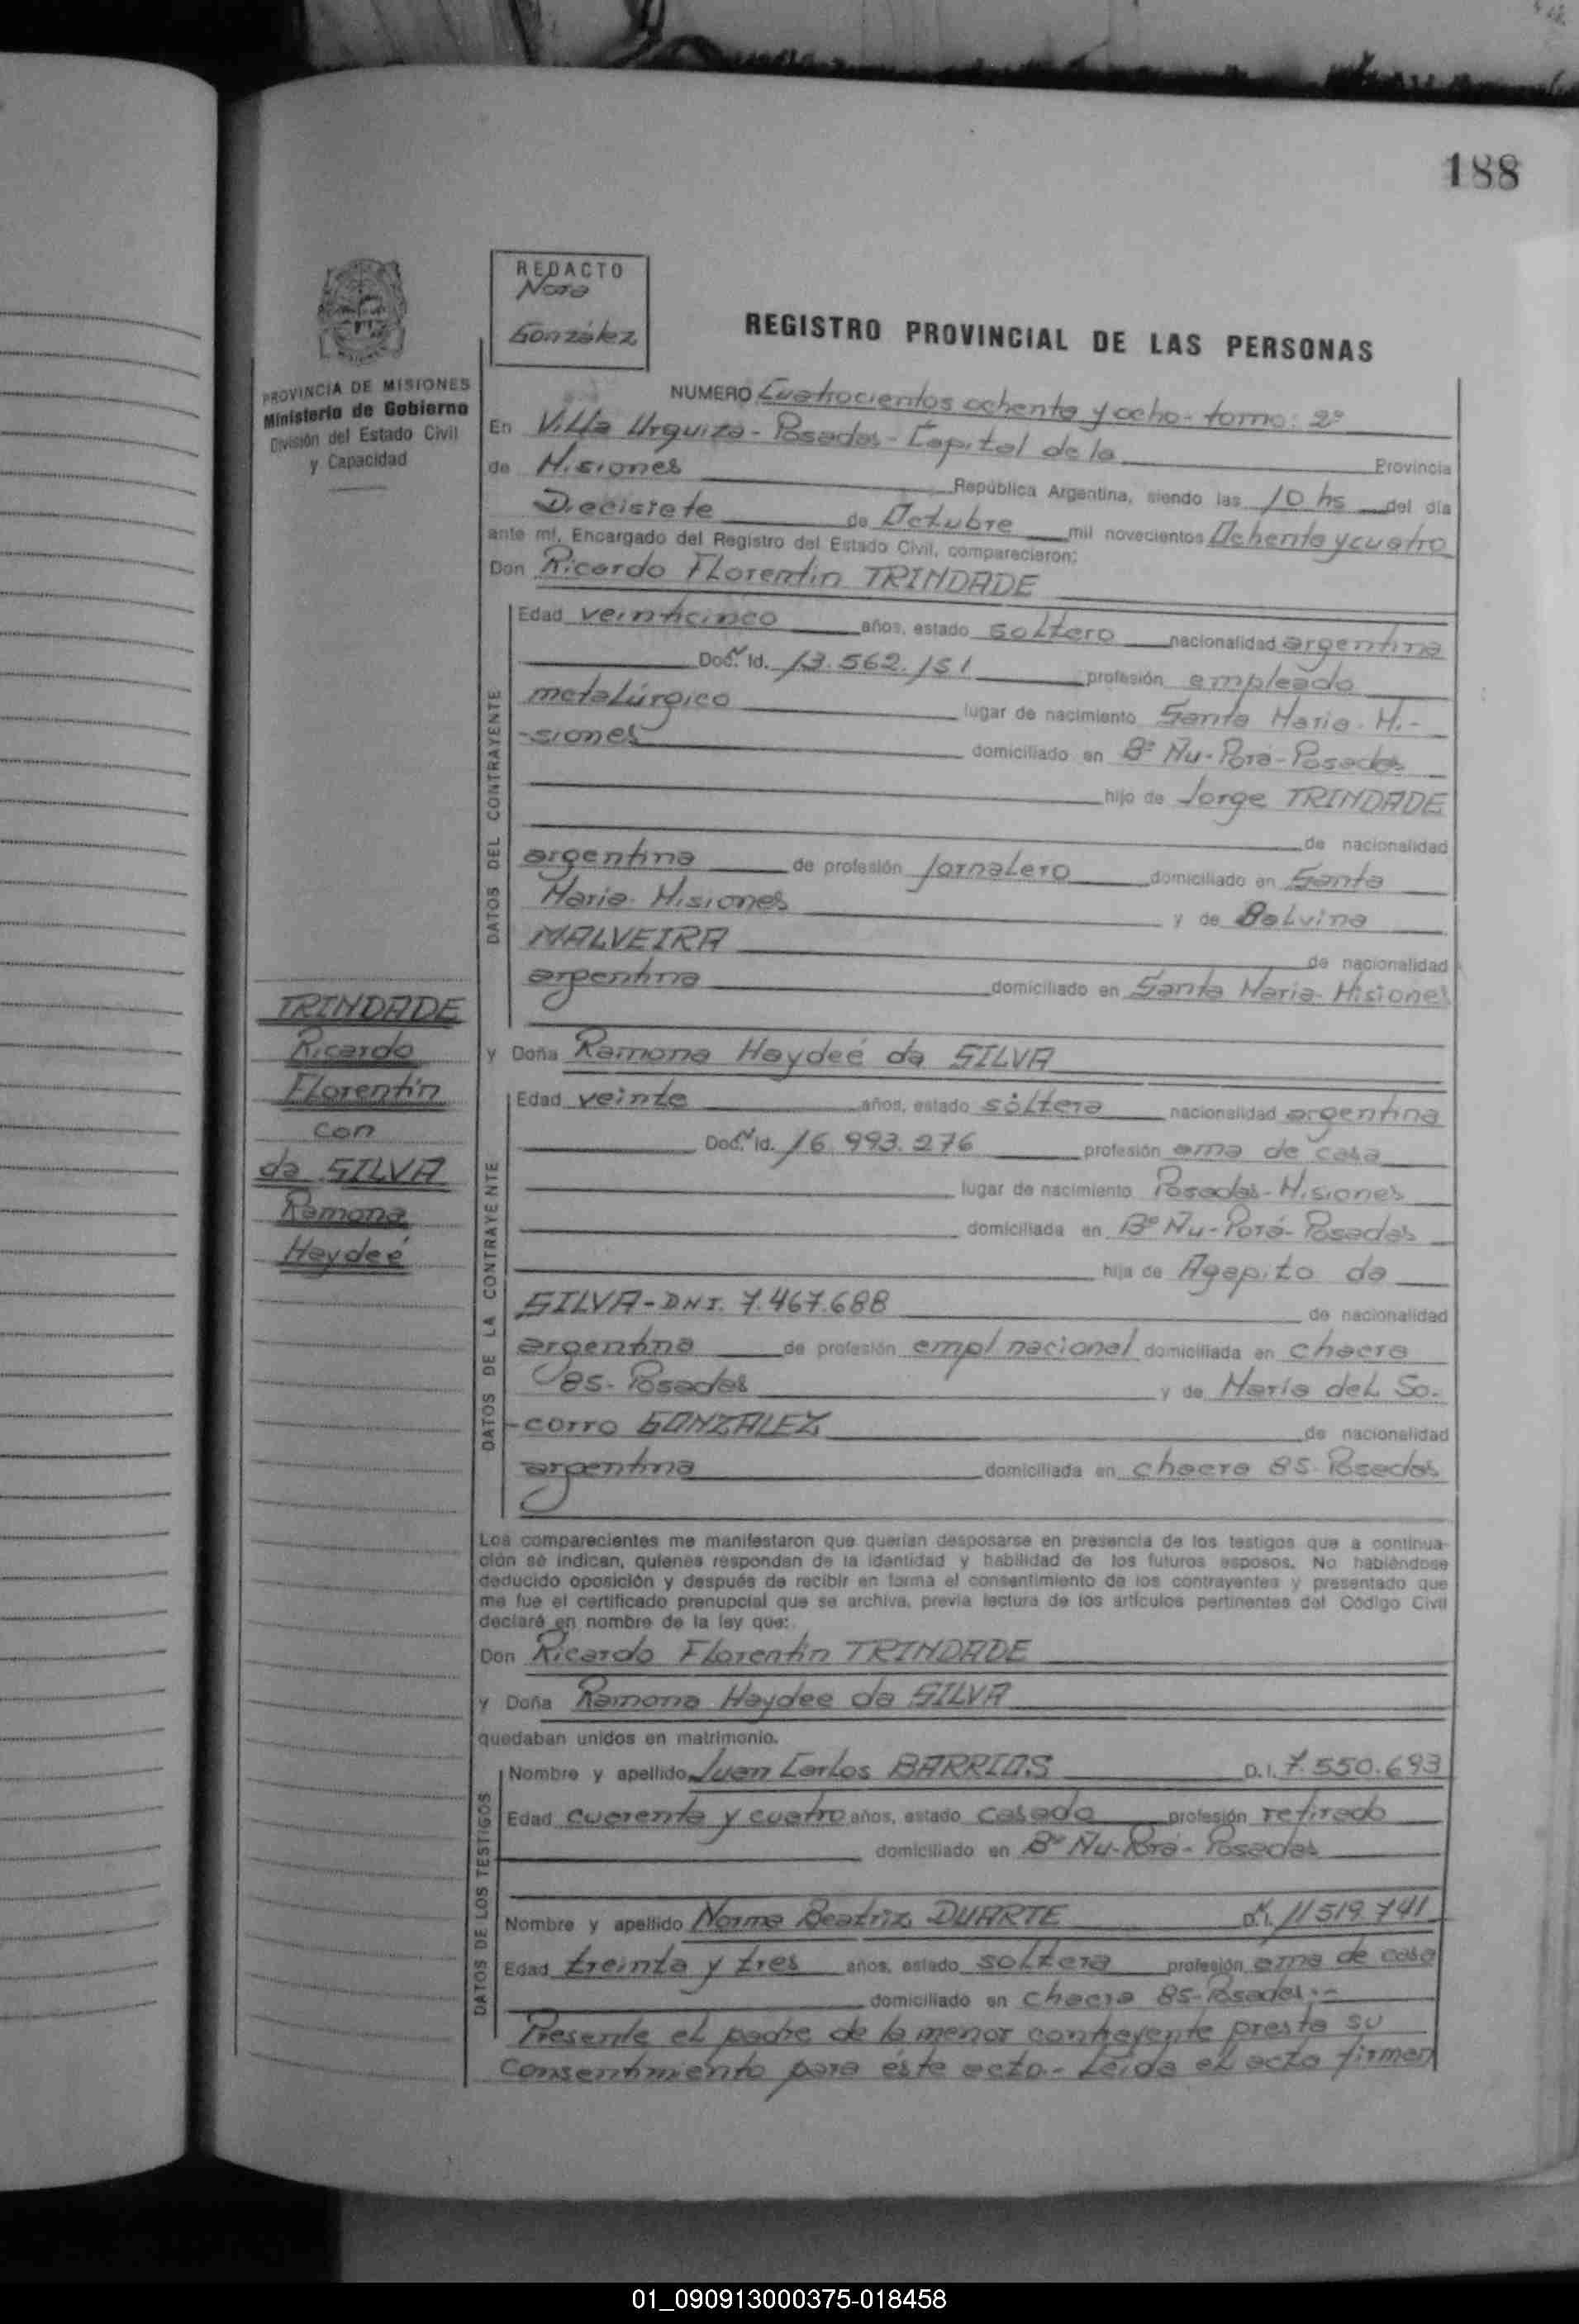 188
REDACTO
Nora
González
REGISTRO PROVINCIAL DE LAS PERSONAS
PROVINCIA DE MISIONES
Ministerio de Gobierno
División del Estado Civil
y Capacidad
NUMERO Cuatrocientos ochenta y ocho - tomo: 2º
En Villa Urquiza - Posadas - Capital de la Provincia
de Misiones República Argentina, siendo las 10 hs del día
Diecisiete de Octubre mil novecientos Ochenta y cuatro
ante mí, Encargado del Registro del Estado Civil, comparecieron:
Don Ricardo Florentin TRINDADE
DATOS DEL CONTRAYENTE
Edad veinticinco años, estado soltero nacionalidad argentina
Doc. Id. 13.562.151 profesión empleado
metalúrgico lugar de nacimiento Santa Maria - Mi-
-siones domiciliado en Bº Ñu-Porá-Posadas
hijo de Jorge TRINDADE
de nacionalidad
argentina de profesión jornalero domiciliado en Santa
Maria - Misiones y de Balvina
MALVEIRA de nacionalidad
argentina domiciliado en Santa Maria - Misiones
TRINDADE
Ricardo
Florentín
con
da SILVA
Ramona
Haydeé
y Doña Ramona Haydeé da SILVA
DATOS DE LA CONTRAYENTE
Edad veinte años, estado soltera nacionalidad argentina
Doc. Id. 16.993.276 profesión ama de casa
lugar de nacimiento Posadas - Misiones
domiciliada en Bº Ñu-Porá-Posadas
hija de Agapito da
SILVA - DNI. 7.467.688 de nacionalidad
argentina de profesión empl nacional domiciliada en chacra
85 - Posadas y de María del So-
-corro GONZALEZ de nacionalidad
argentina domiciliada en chacra 85 - Posadas
Los comparecientes me manifestaron que querían desposarse en presencia de los testigos que a continua-
ción se indican, quienes responden de la identidad y habilidad de los futuros esposos. No habiéndose
deducido oposición y después de recibir en forma el consentimiento de los contrayentes y presentado que
me fue el certificado prenupcial que se archiva, previa lectura de los artículos pertinentes del Código Civil
declaré en nombre de la ley que:
Don Ricardo Florentín TRINDADE
y Doña Ramona Haydee da SILVA
quedaban unidos en matrimonio.
DATOS DE LOS TESTIGOS
Nombre y apellido Juan Carlos BARRIOS D.I. 7.550.693
Edad cuarenta y cuatro años, estado casado profesión retirado
domiciliado en Bº Ñu-Porá - Posadas
Nombre y apellido Norma Beatriz DUARTE D.I. 11519.741
Edad treinta y tres años, estado soltera profesión ama de casa
domiciliado en chacra 85-Posadas.-
Presente el padre de la menor contrayente presta su
consentimiento para éste acto.- Leída el acta firman
01_090913000375-018458